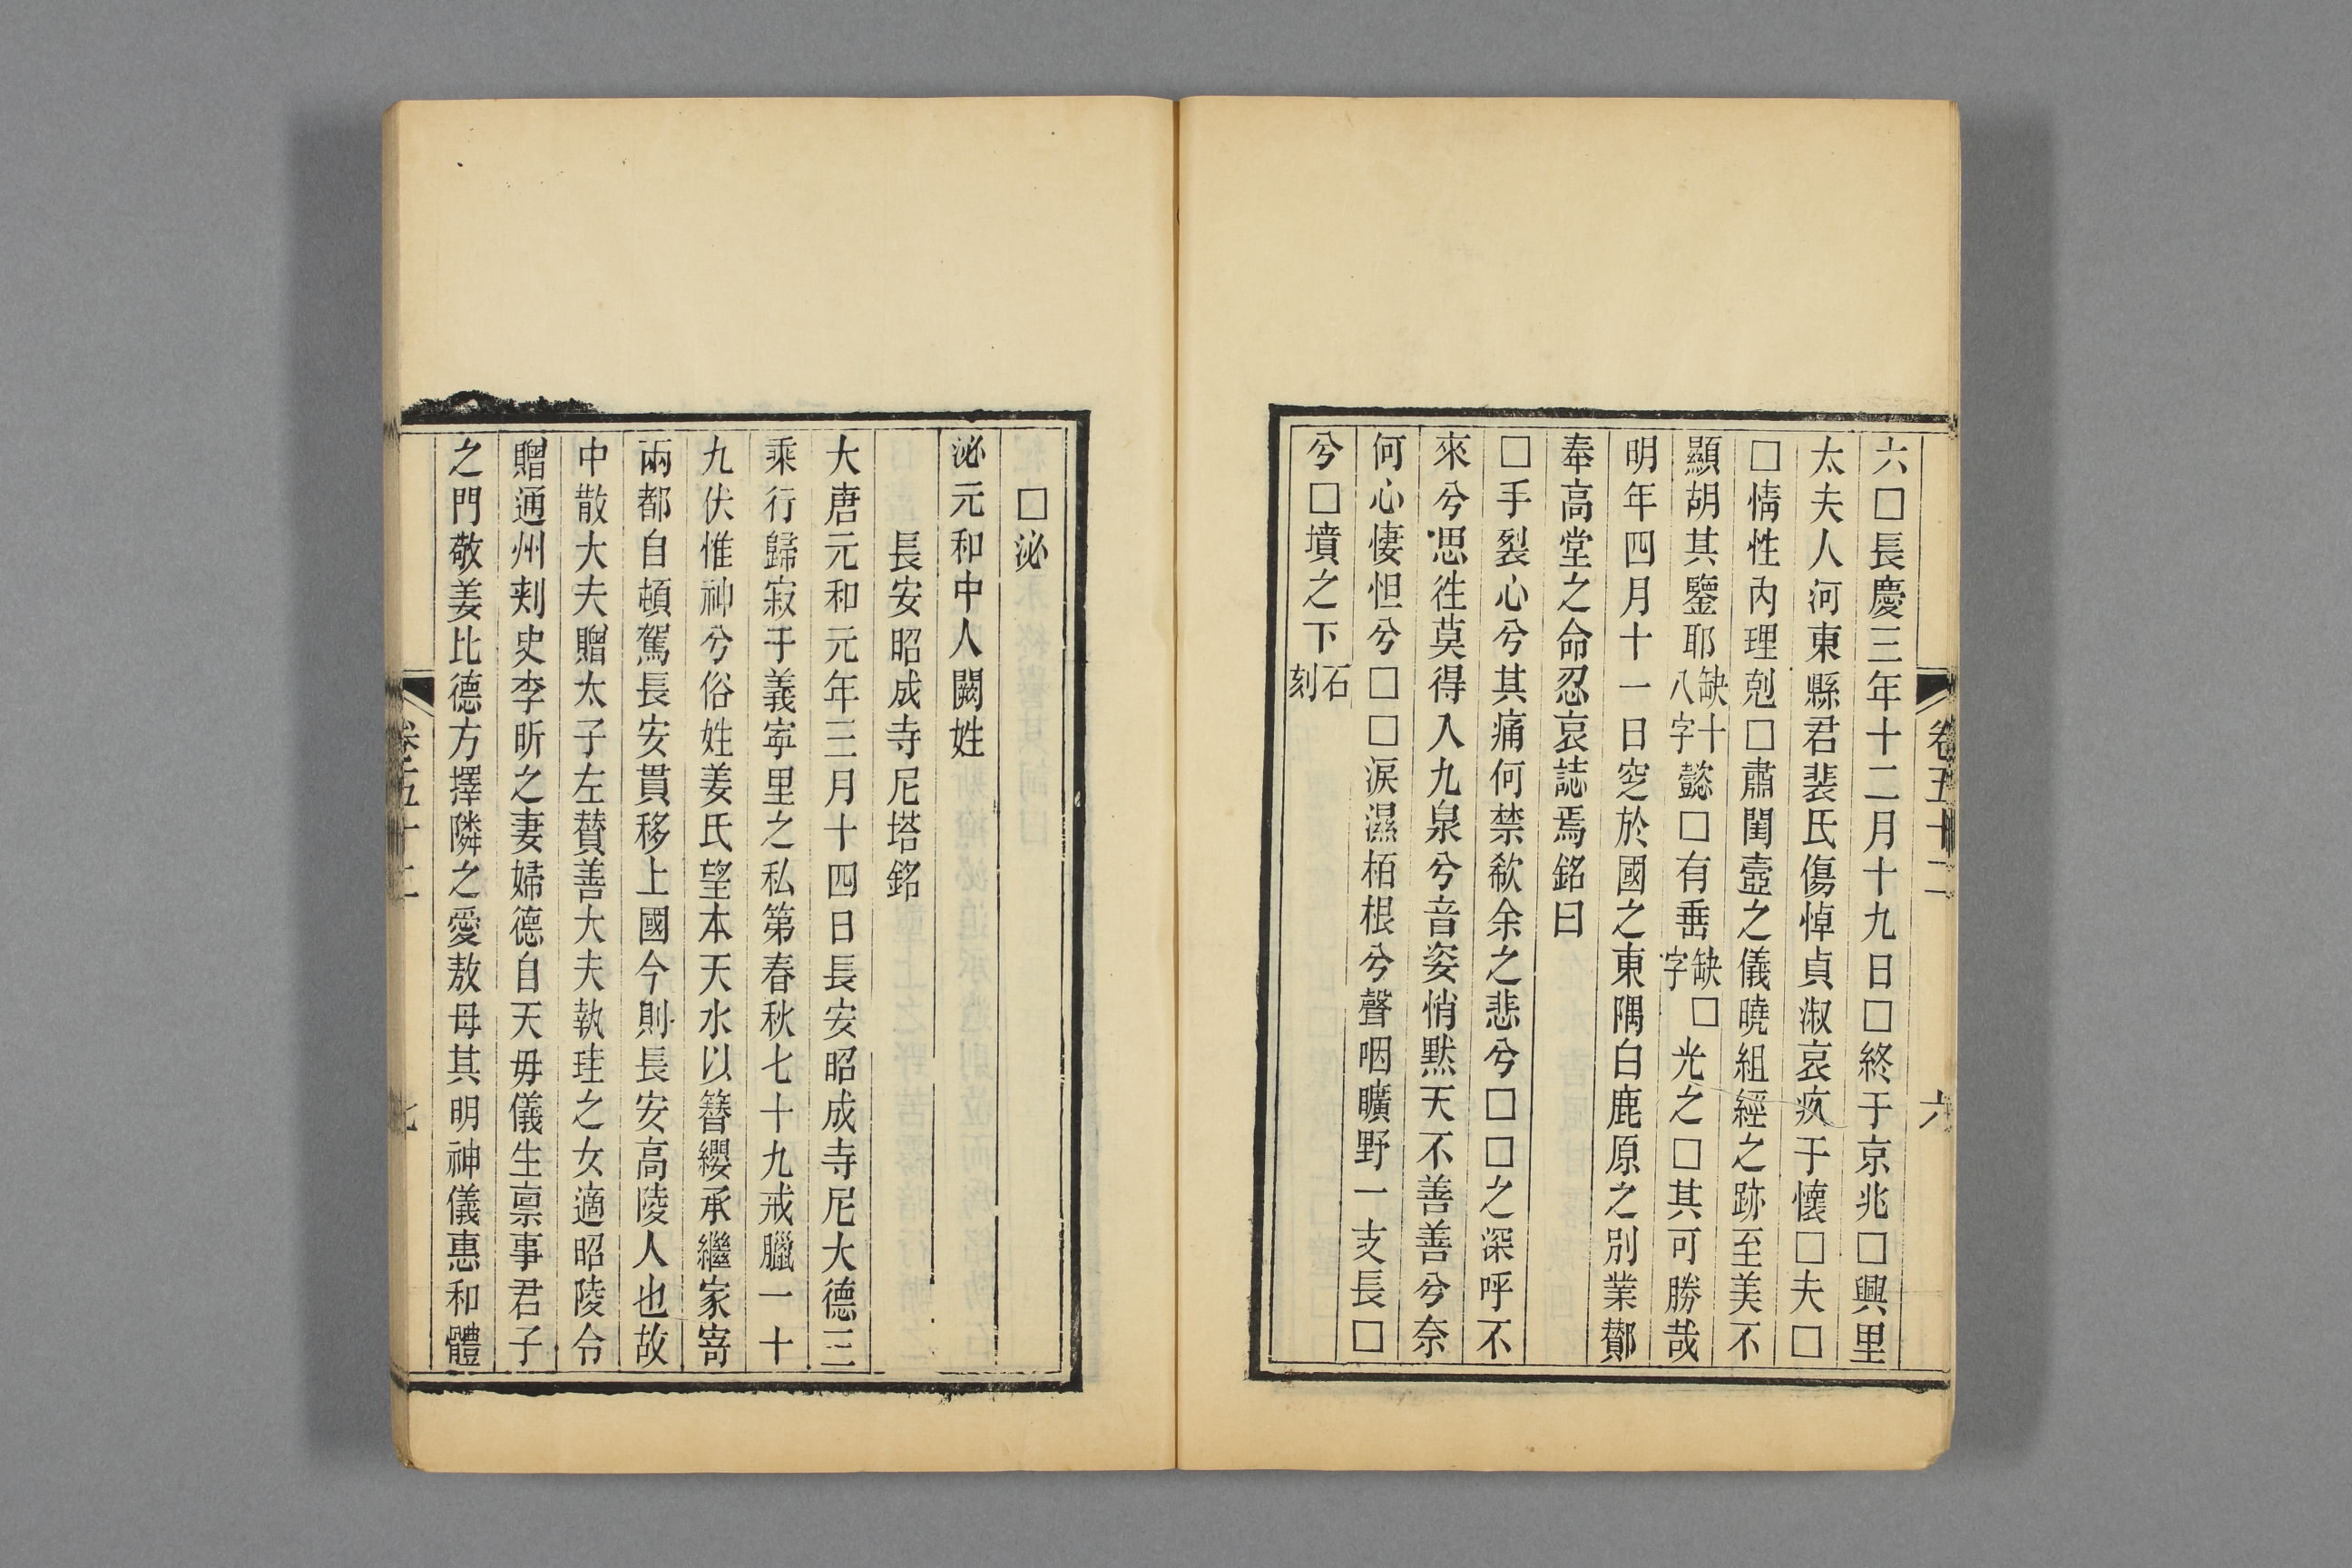 卷五十二　六
六□長慶三年十二月十九日□終于京兆□興里
太夫人河東縣君裴氏傷悼貞淑哀疚于懷□夫□
□情性內理剋□肅閨壼之儀曉組經之跡至美不
顯胡其鑒耶缺十八字懿□有垂缺字□光之□其可勝哉
明年四月十一日窆於國之東隅白鹿原之別業鄼
奉高堂之命忍哀誌焉銘曰
□手裂心兮其痛何禁欷余之悲兮□□之深呼不
來兮思徃莫得入九泉兮音姿悄默天不善善兮奈
何心悽怛兮□□淚濕栢根兮聲咽曠野一支長□
兮□墳之下石刻
□泌
泌元和中人闕姓
長安昭成寺尼塔銘
大唐元和元年三月十四日長安昭成寺尼大德三
乘行歸寂于義寧里之私第春秋七十九戒臘一十
九伏惟神兮俗姓姜氏望本天水以簪纓承繼家寄
兩都自頓駕長安貫移上國今則長安高陵人也故
中散大夫贈太子左贊善大夫執珪之女適昭陵令
贈通州刾史李昕之妻婦德自天毋儀生禀事君子
之門敬姜比德方擇隣之愛敖母其明神儀惠和體
卷五十二　七